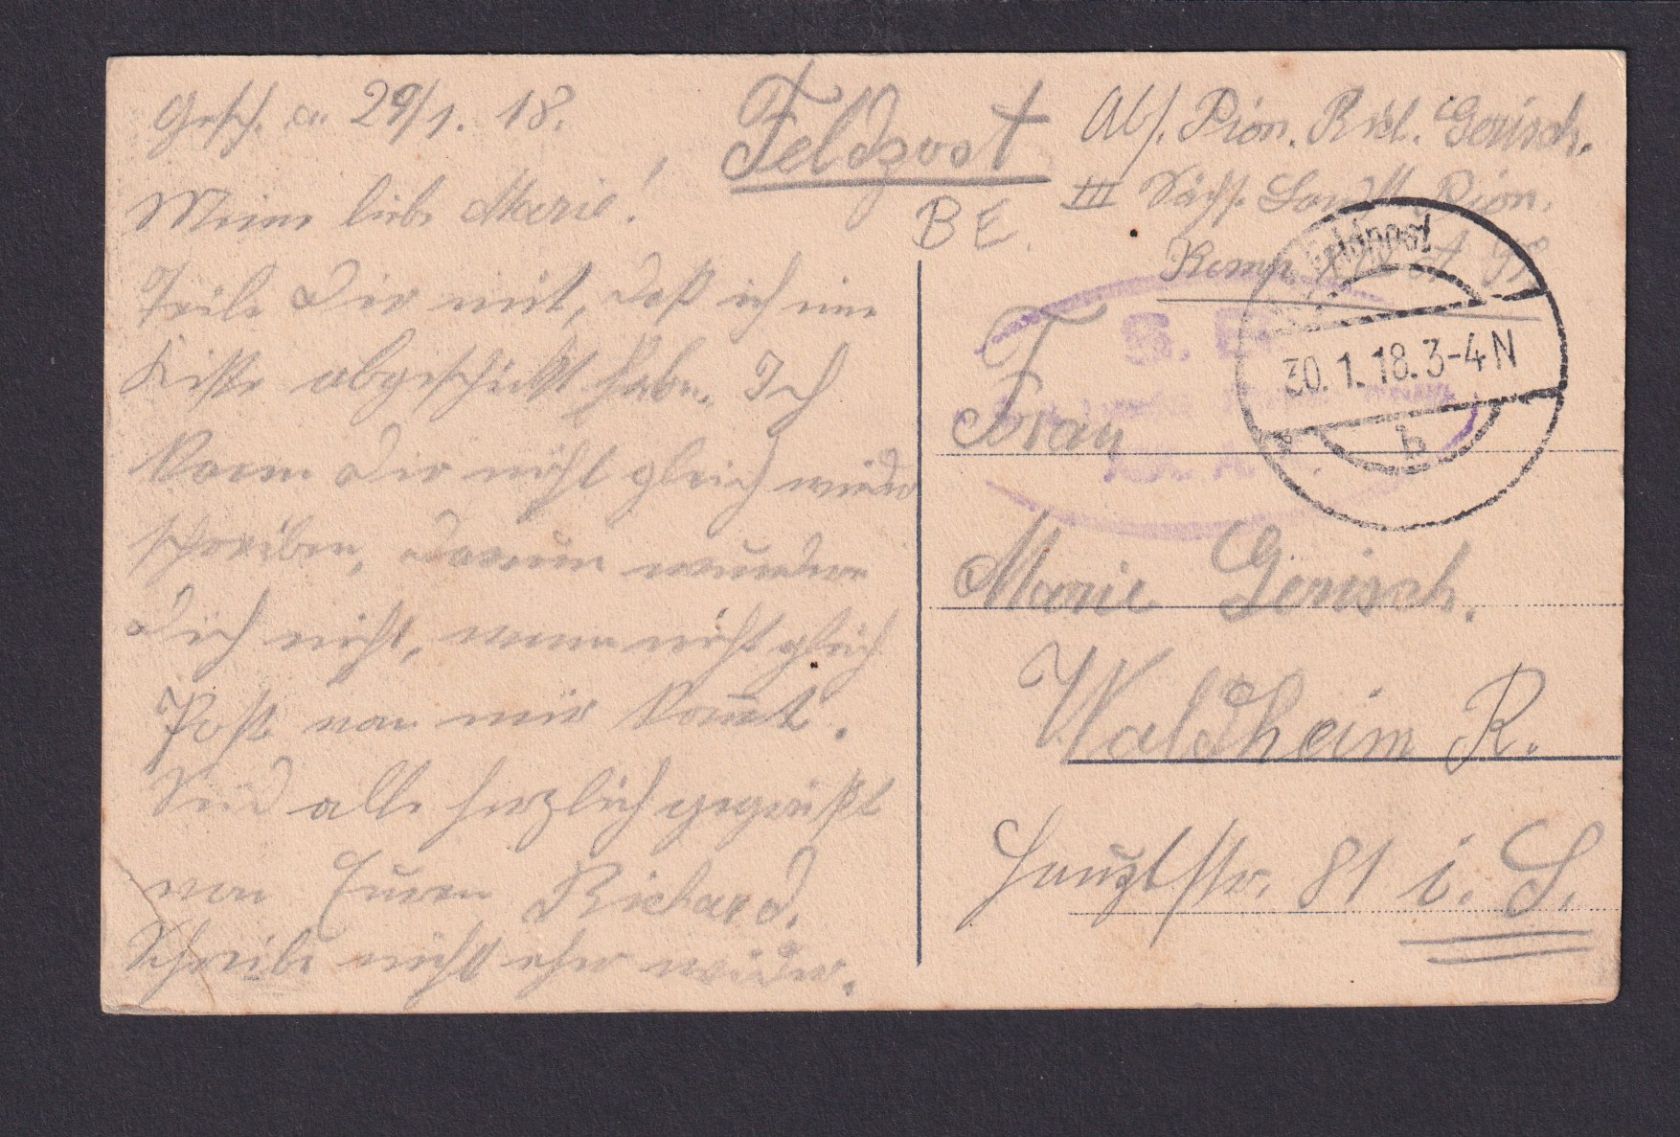 Gesch. a. 29/1. 18.
Meine liebe Marie!
Teile Dir mit, daß ich eine
Kiste abgeschickt habe. Ich
kann Dir nicht gleich wieder
schreiben, darum wundere
Dich nicht, wenn nicht gleich
Post von mir kommt.
Seid alle herzlich gegrüßt
von Euren Richard.
Schreibe nicht eher wieder.
Feldpost
BE.
Abs. Pion. Rich. Gerisch.
III Sächs. Landst. Pion.
Komp.
Feldpost
30.1.18.3-4N
b
S. B.
Frau
Marie Gerisch.
Waldheim R.
Hauptstr. 81 i. S.